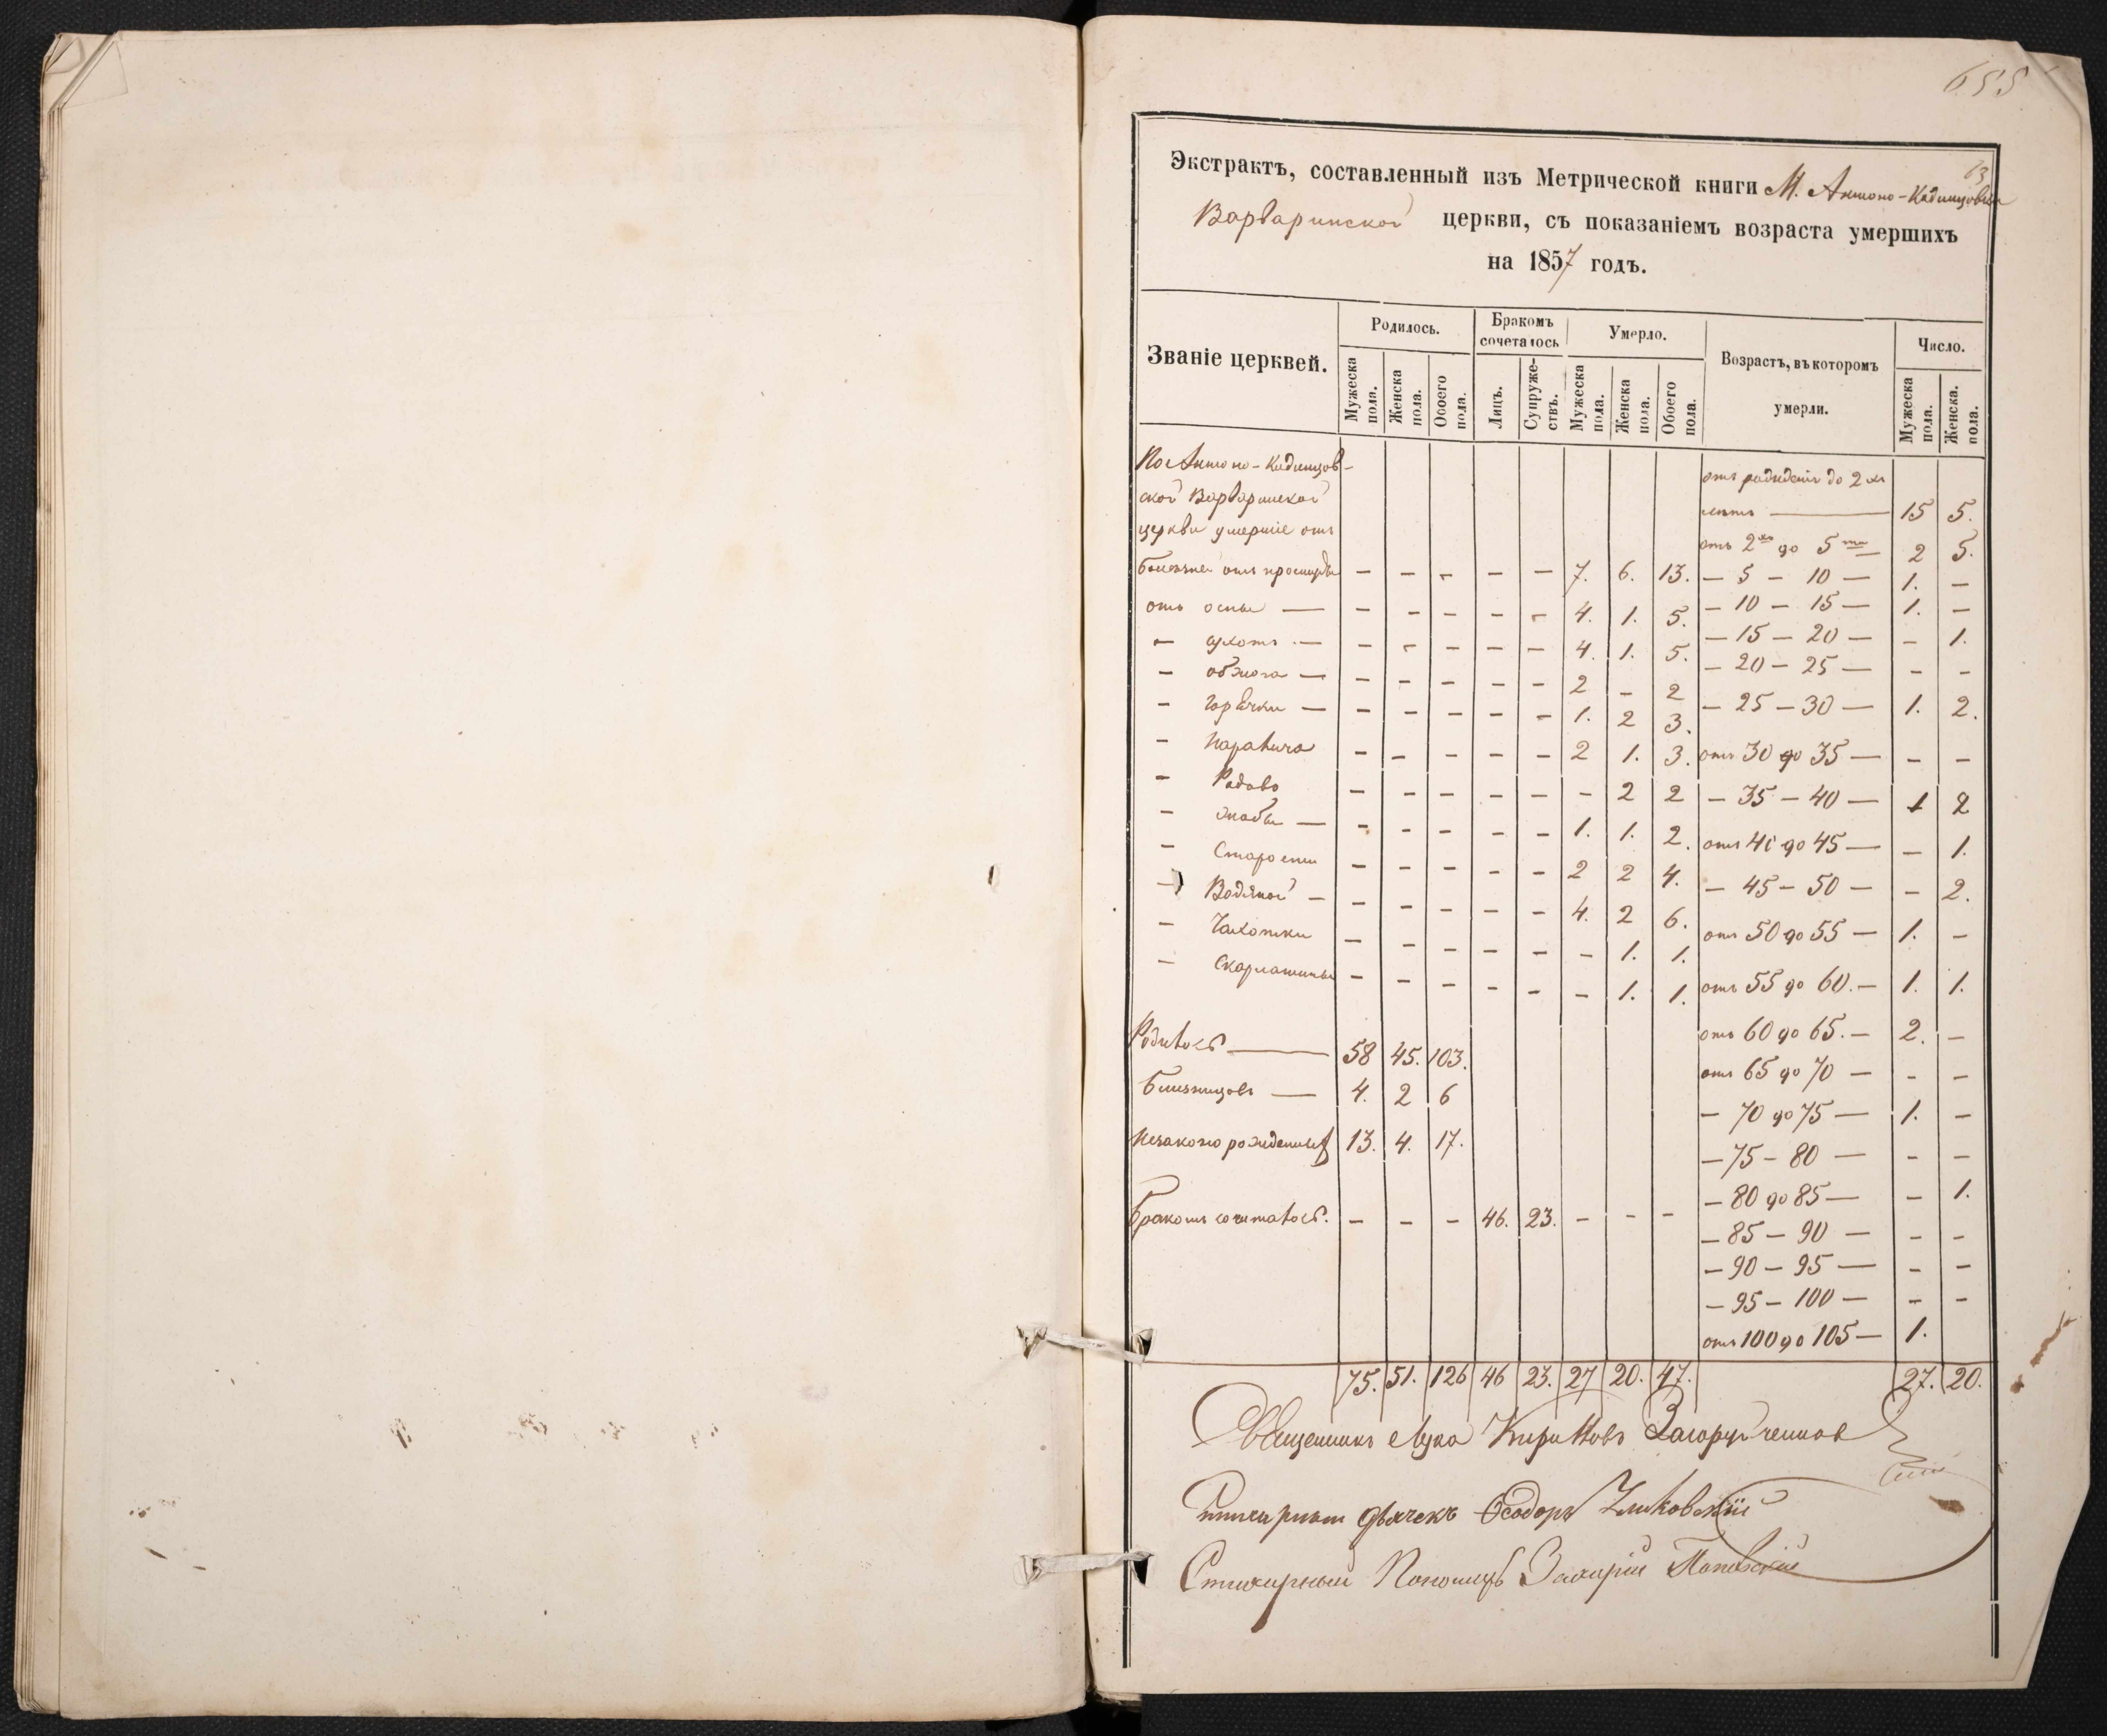 655
63
Экстрактъ, составленный изъ Метрической книги М. Антоно-Кодинцовки
Варваринской церкви, съ показаніемъ возраста умершихъ
на 1857 годъ.
Званіе церквей. Родилось. Бракомъ сочеталось Умерло. Возрастъ, въ которомъ умерли. Число.
Мужеска пола. Женска пола. Обоего пола. Лицъ. Супружествъ. Мужеска пола. Женска пола. Обоего пола. Мужеска пола. Женска. пола.
По Антоно-Кодинцов-
ской Варваринской отъ рождения до 2 хъ
церкви умершіе отъ летъ — 15 5.
отъ 2хъ до 5ти 2 5.
болезней отъ простуды — — — — — 7. 6. 13. — 5 — 10 — 1. —
отъ оспы — — — — — — 4. 1. 5. — 10 — 15 — 1. —
— — — — — — — 4. 1. 5. — 15 — 20 — — 1.
— — — — — — — 2 — 2 — 20 — 25 — — —
— горячки — — — — — — 1. 2 3. — 25 — 30 — 1. 2.
— Паралича — — — — — 2 1. 3. отъ 30 до 35 — — —
— Родовъ — — — — — — 2 2 — 35 — 40 — 1 2
— жабы — — — — — — 1. 1. 2. отъ 40 до 45 — — 1.
— Старости — — — — — 2 2 4. — 45 — 50 — — 2.
— Водяной — — — — — — 4. 2 6. отъ 50 до 55 — 1. —
— Чахотки — — — — — — 1. 1.
— Скарлатины — — — — — — 1. 1. отъ 55 до 60. — 1. 1.
отъ 60 до 65. — 2. —
Родилось — 58 45. 103.
отъ 65 до 70 — — —
Близнецовъ — 4. 2 6
— 70 до 75 — 1. —
Незаконо рожденныхъ 13. 4. 17.
— 75 — 80 — — —
— 80 до 85 — — 1.
Бракомъ сочеталось. — — — 46. 23. — — —
— 85 — 90 — — —
— 90 — 95 — — —
— 95 — 100 — — —
отъ 100 до 105 — 1.
75. 51. 126 46 23. 27 20. 47. 27. 20.
Священникъ Лука Кириловъ
дьячекъ Ѳеодоръ
Стихарный Пономарь Захарій